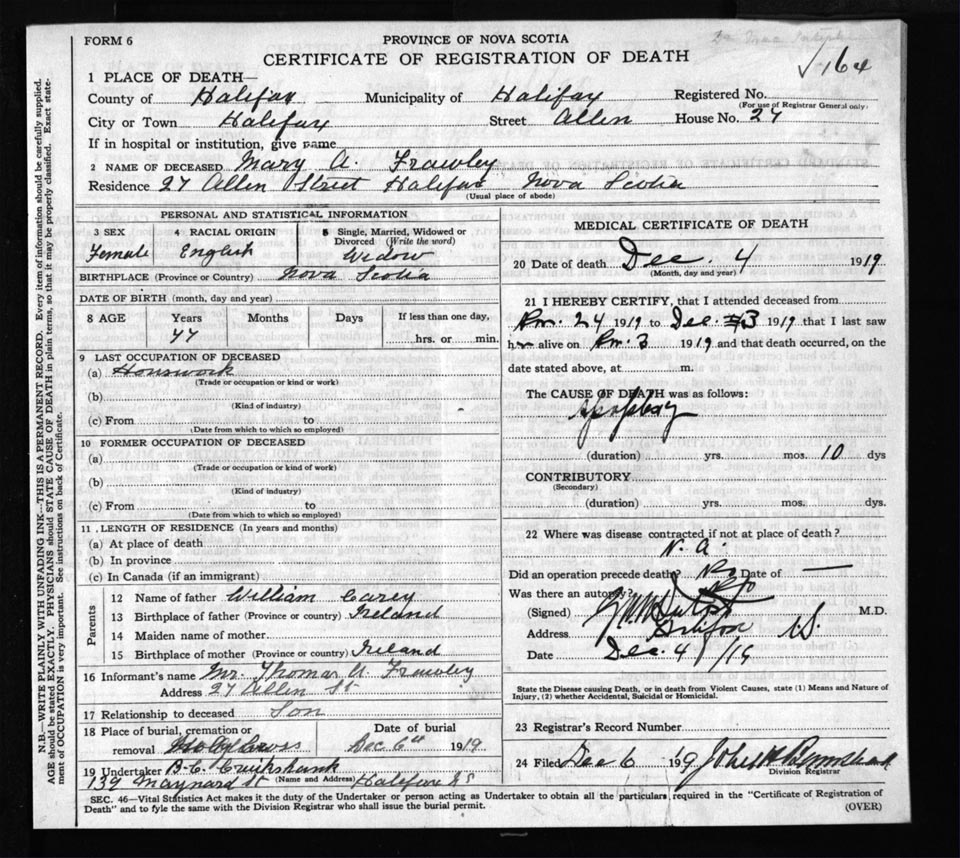 FORM 6
PROVINCE OF NOVA SCOTIA
CERTIFICATE OF REGISTRATION OF DEATH
164
1 PLACE OF DEATH—
County of Halifax Municipality of Halifax Registered No.
(For use of Registrar General only)
City or Town Halifax Street Allen House No. 27
If in hospital or institution, give name
2 NAME OF DECEASED Mary A. Frawley
Residence 27 Allen Street Halifax Nova Scotia
(Usual place of abode)
PERSONAL AND STATISTICAL INFORMATION
3 SEX 4 RACIAL ORIGIN 5 Single, Married, Widowed or Divorced (Write the word)
Female English Widow
BIRTHPLACE (Province or Country) Nova Scotia
DATE OF BIRTH (month, day and year)
8 AGE Years Months Days If less than one day,
77 hrs. or min.
9 LAST OCCUPATION OF DECEASED
(a) Housework
(Trade or occupation or kind or work)
(b)
(Kind of industry)
(c) From to
(Date from which to which so employed)
10 FORMER OCCUPATION OF DECEASED
(a)
(Trade or occupation or kind of work)
(b)
(Kind of industry)
(c) From to
(Date from which to which so employed)
11 LENGTH OF RESIDENCE (In years and months)
(a) At place of death
(b) In province
(c) In Canada (if an immigrant)
Parents
12 Name of father William Carey
13 Birthplace of father (Province or country) Ireland
14 Maiden name of mother
15 Birthplace of mother (Province or country) Ireland
16 Informant's name Mr. Thomas A. Frawley
Address 27 Allen St
17 Relationship to deceased Son
18 Place of burial, cremation or removal Holy Cross
Date of burial Dec 6th 1919
19 Undertaker B. C. Cruikshank
(Name and Address)
139 Maynard St Halifax N S
MEDICAL CERTIFICATE OF DEATH
20 Date of death Dec. 4 1919
(Month, day and year)
21 I HEREBY CERTIFY, that I attended deceased from
24 1919 to Dec. 3 1919 that I last saw
h alive on 3 1919 and that death occurred, on the
date stated above, at m.
The CAUSE OF DEATH was as follows:
Apoplexy
(duration) yrs. mos. 10 dys
CONTRIBUTORY
(Secondary)
(duration) yrs. mos. dys.
22 Where was disease contracted if not at place of death?
N. A.
Did an operation precede death? No Date of —
Was there an autopsy? No
(Signed) M.D.
Address Halifax N.S.
Date Dec. 4 /19
State the Disease causing Death, or in death from Violent Causes, state (1) Means and Nature of
Injury, (2) whether Accidental, Suicidal or Homicidal.
23 Registrar's Record Number
24 Filed Dec 6 1919 John
Division Registrar
SEC. 46—Vital Statistics Act makes it the duty of the Undertaker or person acting as Undertaker to obtain all the particulars required in the "Certificate of Registration of
Death" and to fyle the same with the Division Registrar who shall issue the burial permit. (OVER)
N.B—WRITE PLAINLY WITH UNFADING INK—THIS IS A PERMANENT RECORD. Every item of information should be carefully supplied.
AGE should be stated EXACTLY. PHYSICIANS should STATE CAUSE OF DEATH in plain terms, so that it may be properly classified. Exact state-
ment of OCCUPATION is very important. See instructions on back of Certificate.